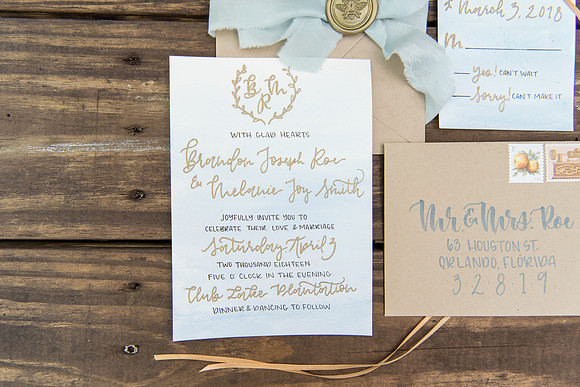 B M
R
WITH GLAD HEARTS
Brandon Joseph Roe
& Melanie Joy Smith
JOYFULLY INVITE YOU TO
CELEBRATE THEIR LOVE & MARRIAGE
Saturday April 3
TWO THOUSAND EIGHTEEN
FIVE O' CLOCK IN THE EVENING
Club Lake Plantation
DINNER & DANCING TO FOLLOW
March 3, 2018
M
Yes! CAN'T WAIT
Sorry! CAN'T MAKE IT
Mr. & Mrs. Roe
63 HOUSTON ST.
ORLANDO, FLORIDA
32819